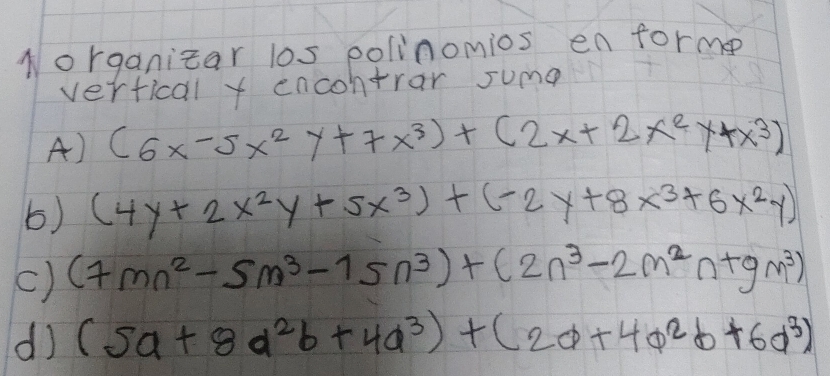 1 organizar los polinomios en forma
vertical y encontrar suma
A) (6x-5x² y+7x³) + (2x+2x² y+x³)
b) (4y+2x²y+5x³) + (-2y+8x³+6x²y)
c) (7mn²-5m³-15n³)+(2n³-2m²n+9m³)
d) (5a+8a²b+4a³) + (2a+4a²b+6a³)